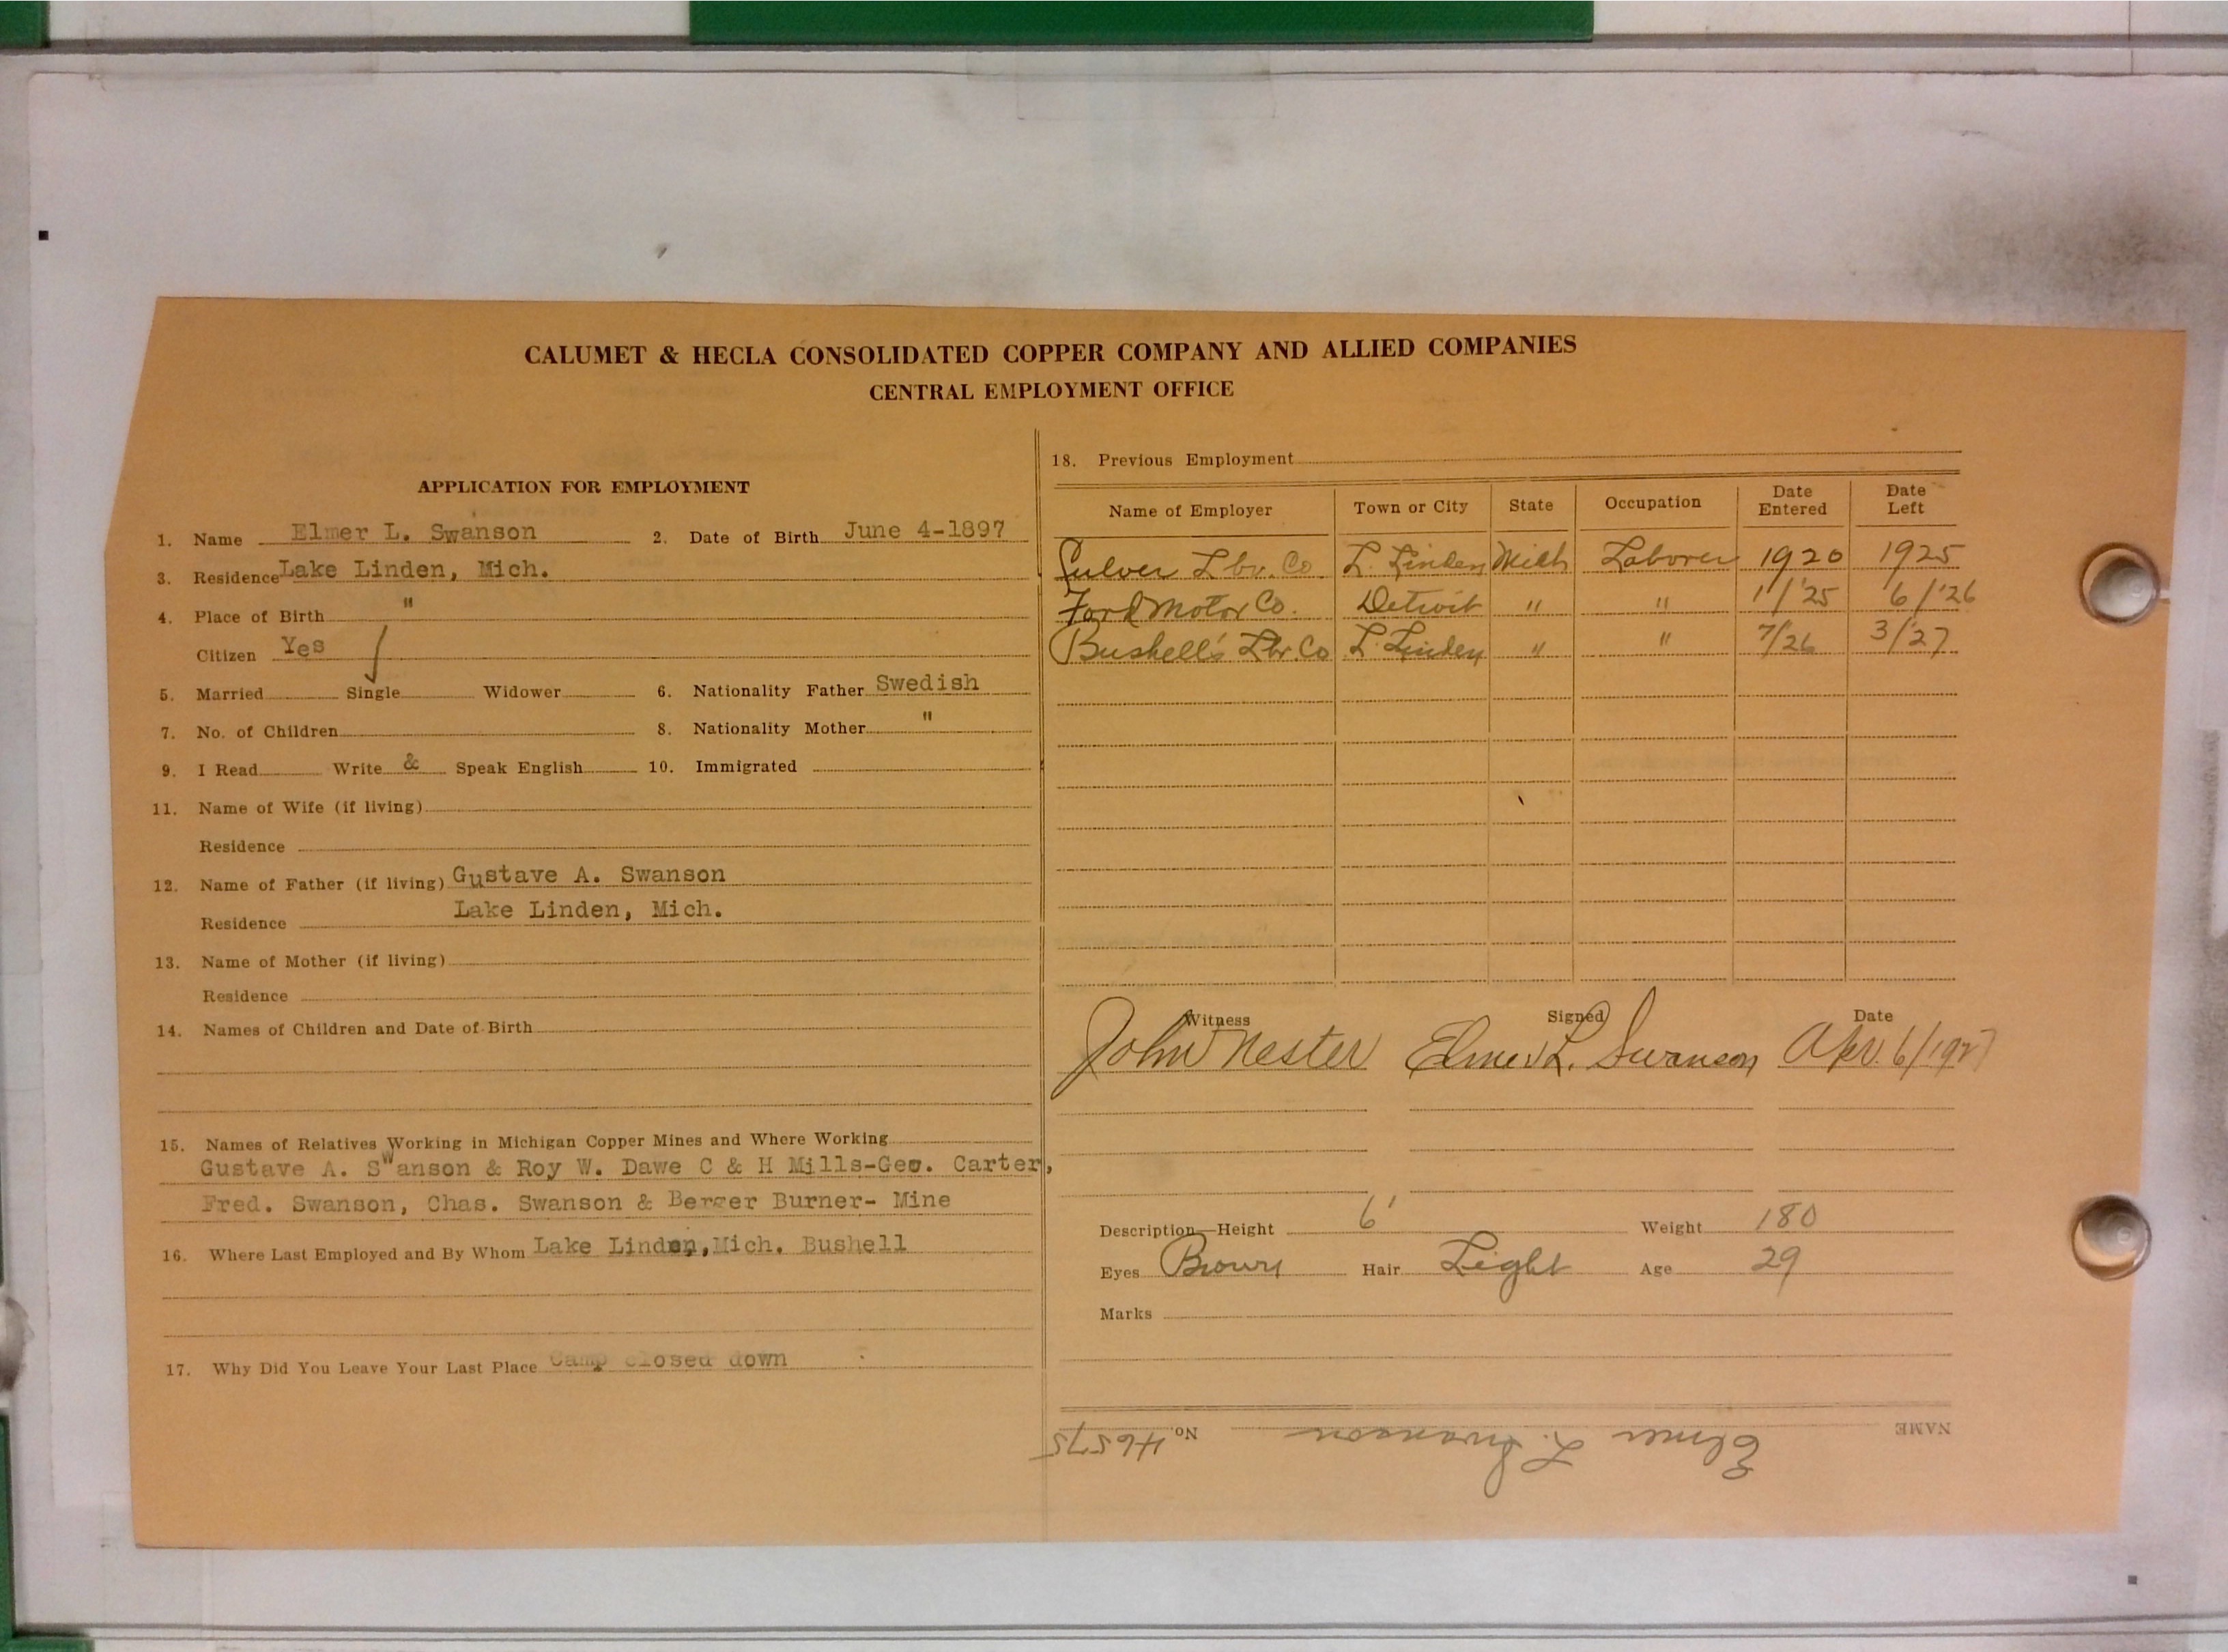 CALUMET & HECLA CONSOLIDATED COPPER COMPANY AND ALLIED COMPANIES
CENTRAL EMPLOYMENT OFFICE
APPLICATION FOR EMPLOYMENT
1. Name Elmer L. Swanson 2. Date of Birth June 4-1897
3. Residence Lake Linden, Mich.
4. Place of Birth "
Citizen Yes
5. Married Single Widower 6. Nationality Father Swedish
7. No. of Children 8. Nationality Mother "
9. I Read Write & Speak English 10. Immigrated
11. Name of Wife (if living)
Residence
12. Name of Father (if living) Gustave A. Swanson
Residence Lake Linden, Mich.
13. Name of Mother (if living)
Residence
14. Names of Children and Date of Birth
15. Names of Relatives Working in Michigan Copper Mines and Where Working
Gustave A. Swanson & Roy W. Dawe C & H Mills-Geo. Carter,
Fred. Swanson, Chas. Swanson & Berger Burner- Mine
16. Where Last Employed and By Whom Lake Linden, Mich. Bushell
17. Why Did You Leave Your Last Place Camp closed down
18. Previous Employment
Name of Employer Town or City State Occupation Date Entered Date Left
Lbr. Co. L. Linden Mich Laborer 1920 1925
Ford Motor Co. Detroit " " 1/'25 6/'26
Bushell's Lbr. Co L. Linden " " 7/26 3/'27
Witness Signed Date
John Nester Elmer L. Swanson Apr. 6/1927
Description—Height 6' Weight 180
Eyes Brown Hair Light Age 29
Marks
NAME Elmer L. Swanson No. 46575